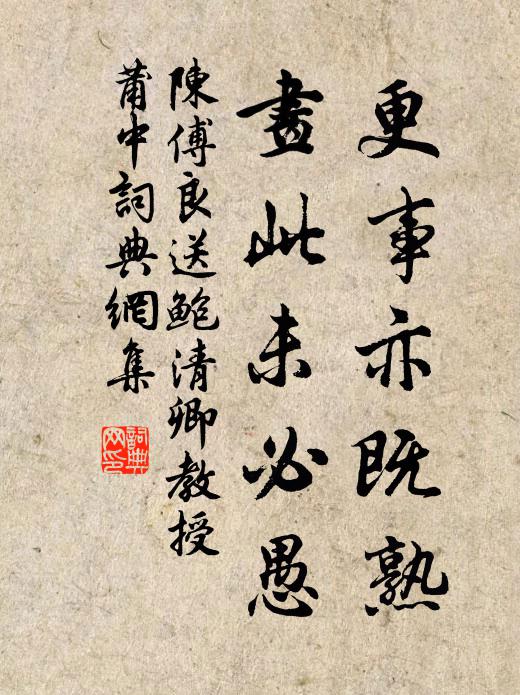 更事亦既熟
畫此未必愚
陳傅良送鮑清卿教授
莆中詞典網集
詞典网印